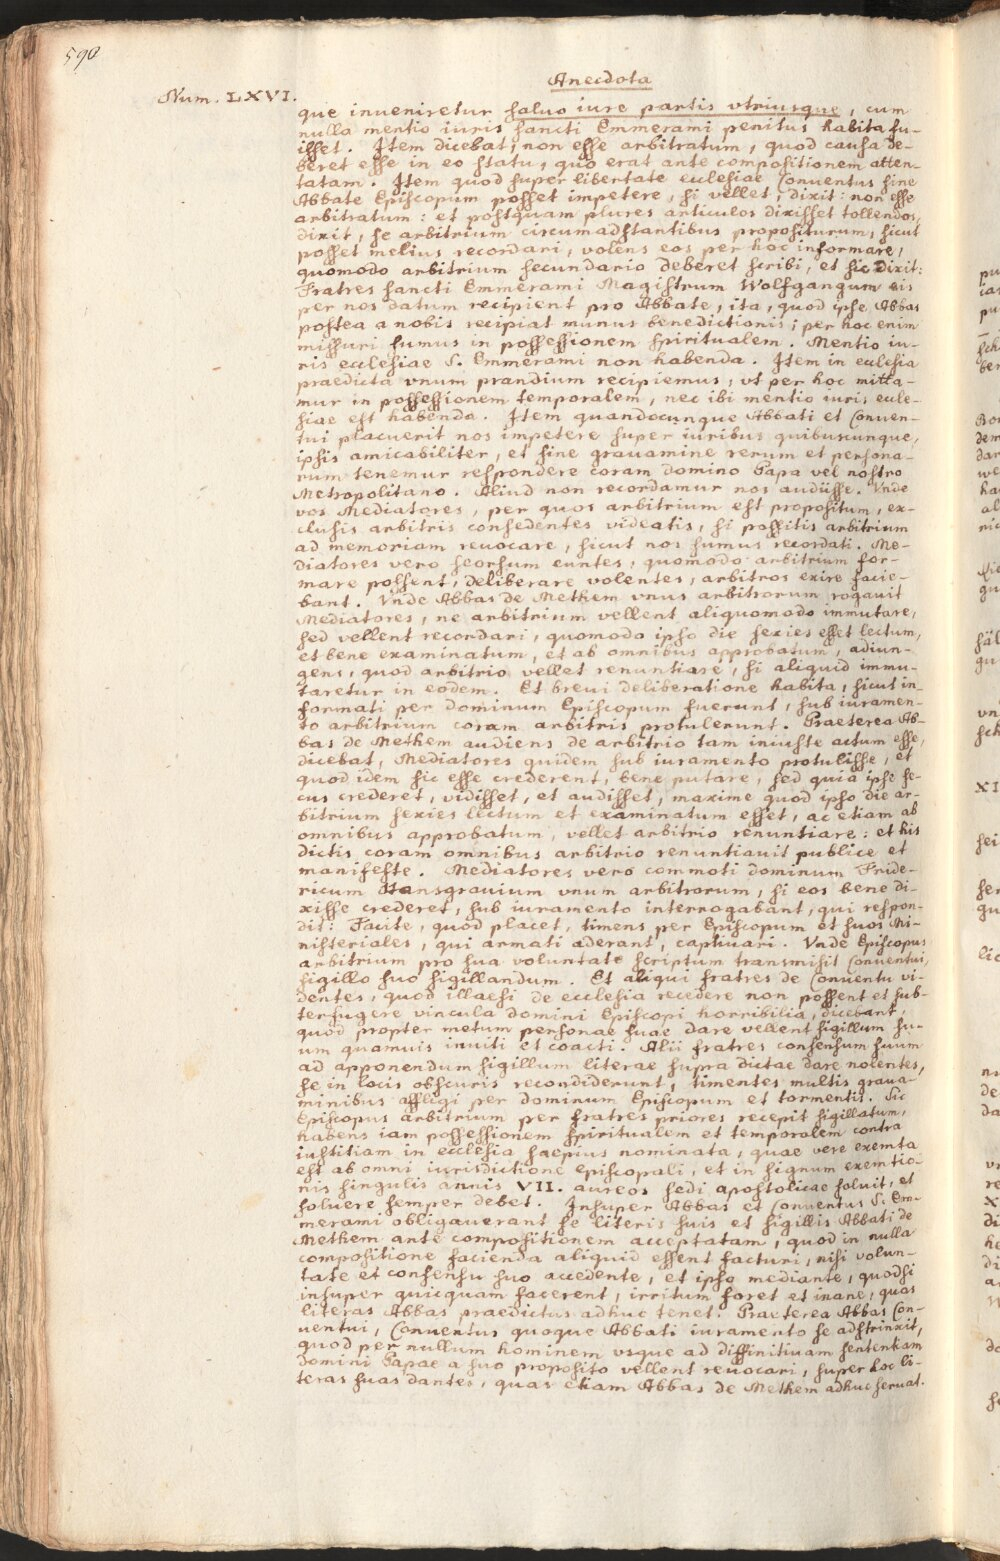 590
Anecdota
Num. LXVI.
que inveniretur salvo iure partis vtriusque, cum
nulla mentio iuris sancti Emmerami penitus habita fu-
isset. Item dicebat, non esse arbitratum, quod causa de-
beret esse in eo statu, quo erat ante compositionem atten-
tatam. Item quod super libertate ecclesiae Conventus sine
Abbate Episcopum posset impetere, si vellet, dixit: non esse
arbitratum: et postquam plures articulos dixisset tollendos,
dixit, se arbitrium circumadstantibus propositurum, sicut
posset melius recordari, volens eos per hoc informare,
quomodo arbitrium secundario deberet scribi, et sic dixit:
Fratres sancti Emmerami Magistrum Wolfgangum eis
per nos datum recipient pro Abbate, ita, quod ipse Abbas
postea a nobis recipiat munus benedictionis; per hoc enim
missuri sumus in possessionem spiritualem. Mentio iu-
ris ecclesiae S. Emmerami non habenda. Item in ecclesia
praedicta vnum prandium recipiemus, vt per hoc mitta-
mur in possessionem temporalem, nec ibi mentio iuris eccle-
siae est habenda. Item quandocunque Abbati et Conven-
tui placuerit nos impetere super iuribus quibuscunque,
ipsis amicabiliter, et sine gravamine rerum et persona-
rum tenemur respondere coram domino Papa vel nostro
Metropolitano. Aliud non recordamur nos audiisse. Vnde
vos Mediatores, per quos arbitrium est propositum, ex-
clusis arbitris consedentes videatis, si possitis arbitrium
ad memoriam reuocare, sicut nos sumus recordati. Me-
diatores vero seorsum euntes, quomodo arbitrium for-
mare possent, deliberare volentes, arbitros exire facie-
bant. Vnde Abbas de Methem vnus arbitrorum rogauit
Mediatores, ne arbitrium vellent aliquomodo immutare,
sed vellent recordari, quomodo ipso die sexies esset lectum,
et bene examinatum, et ab omnibus approbatum, adiun-
gens, quod arbitrio vellet renuntiare, si aliquid immu-
taretur in eodem. Et breui deliberatione habita, sicut in-
formati per dominum Episcopum fuerunt, sub iuramen-
to arbitrium coram arbitris protulerunt. Praeterea Ab-
bas de Methem audiens de arbitrio tam iniuste actum esse,
dicebat, Mediatores quidem sub iuramento protulisse, et
quod idem sic esse crederent, bene putare, sed quia ipse se-
cus crederet, vidisset, et audisset, maxime quod ipso die ar-
bitrium sexies lectum et examinatum esset, ac etiam ab
omnibus approbatum, vellet arbitrio renuntiare: et his
dictis coram omnibus arbitrio renuntiauit publice et
manifeste. Mediatores vero commoti dominum Fride-
ricum Hansgravium vnum arbitrorum, si eos bene di-
xisse crederet, sub iuramento interrogabant, qui respon-
dit: Facite, quod placet, timens per Episcopum et suos Mi-
nisteriales, qui armati aderant, captiuari. Vnde Episcopus
arbitrium pro sua voluntate scriptum transmisit Conventui,
sigillo suo sigillandum. Et aliqui fratres de Conventu vi-
dentes, quod illaesi de ecclesia recedere non possent et sub-
terfugere vincula domini Episcopi horribilia, dicebant,
quod propter metum personae suae dare vellent sigillum su-
um quamuis inviti et coacti. Alii fratres consensum suum
ad apponendum sigillum literae supra dictae dare nolentes,
se in locis obscuris recondiderunt, timentes multis graua-
minibus affligi per dominum Episcopum et tormentis. Sic
Episcopus arbitrium per fratres priores recepit sigillatum,
habens iam possessionem spiritualem et temporalem contra
iustitiam in ecclesia saepius nominata, quae vere exemta
est ab omni iurisdictione episcopali, et in signum exemtio-
nis singulis annis VII. aureos sedi apostolicae soluit, et
soluere semper debet. Insuper Abbas et Conventus S. Em-
merami obligauerant se literis suis et sigillis Abbati de
Methem ante compositionem acceptatam, quod in nulla
compositione facienda aliquid essent facturi, nisi volun-
tate et consensu suo accedente, et ipso mediante, quodsi
insuper quicquam facerent, irritum foret et inane, quas
literas Abbas praedictus adhuc tenet. Praeterea Abbas Con-
ventui, Conventus quoque Abbati iuramento se adstrinxit,
quod per nullum hominem vsque ad diffinitiuam sententiam
domini Papae a suo proposito vellent reuocari, super hoc li-
teras suas dantes, quas etiam Abbas de Methem adhuc seruat.